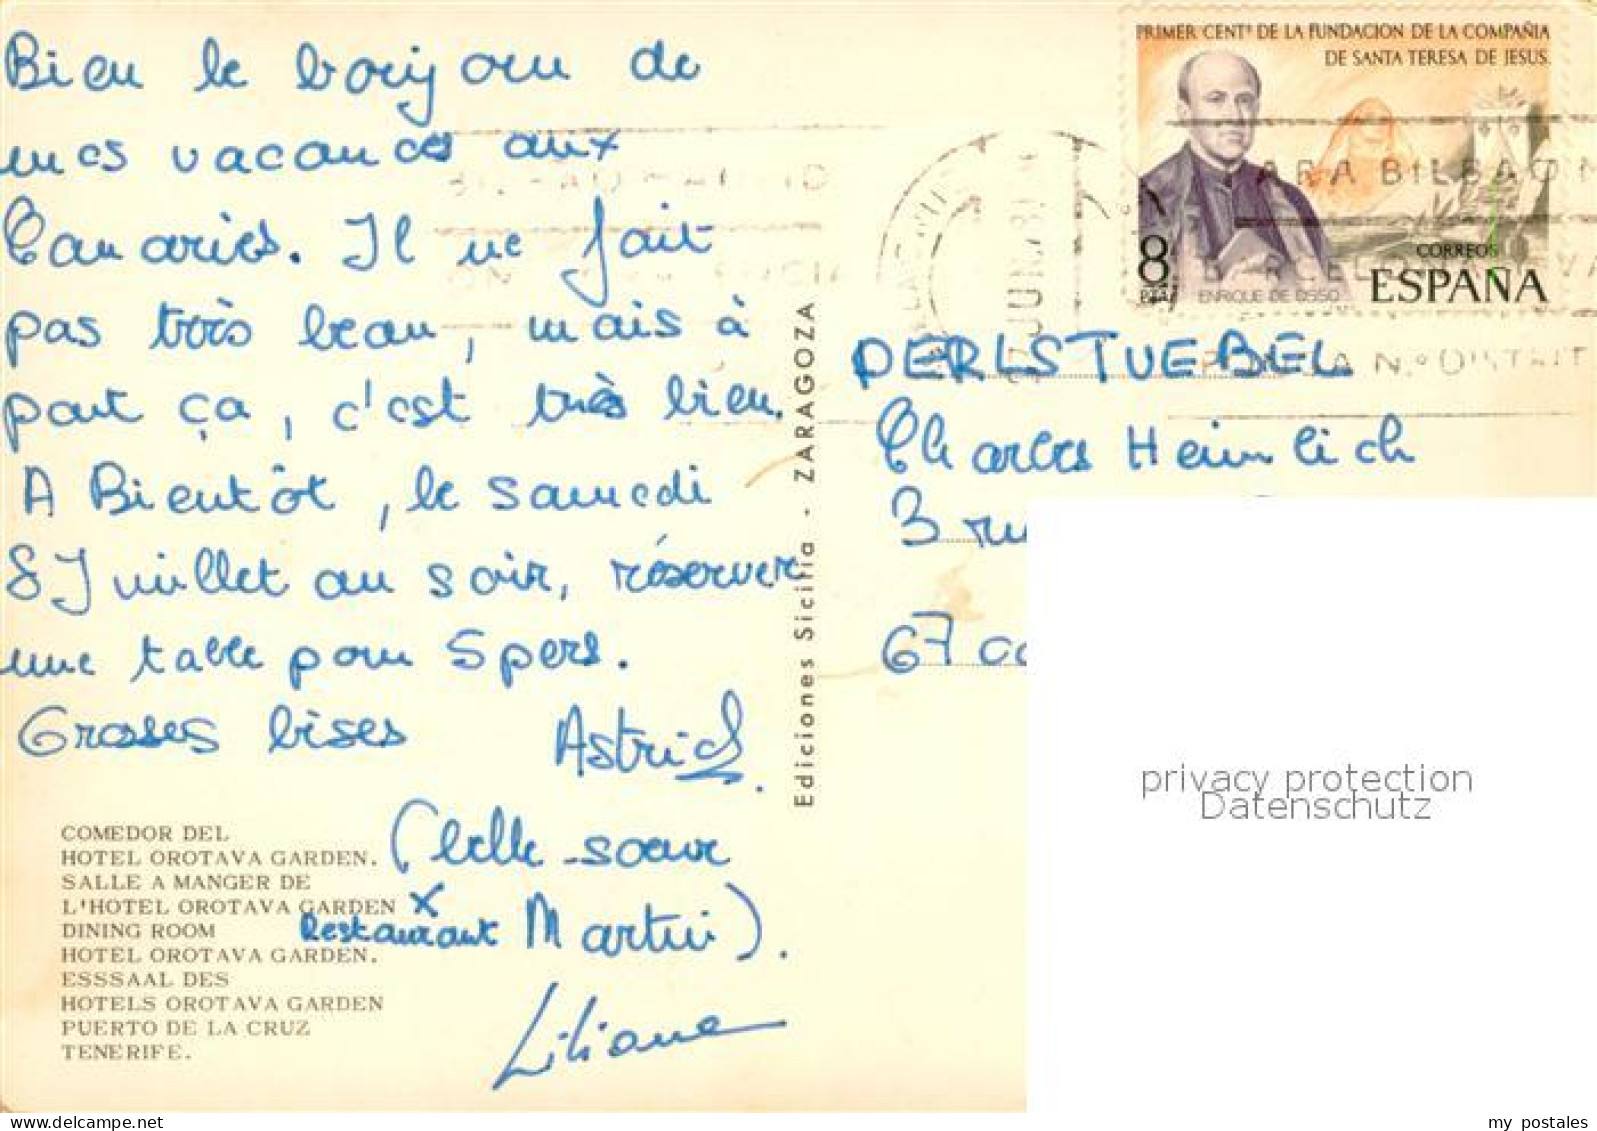 Bien le bonjour de
mes vacances aux
Canaries. Il ne fait
pas très beau, mais à
part ça, c'est très bien.
A Bientôt, le samedi
8 Juillet au soir, réserver
une table pour 5 pers.
Grosses bises Astrid.
(belle-soeur
x
Restaurant Martin).
Liliane
COMEDOR DEL
HOTEL OROTAVA GARDEN.
SALLE A MANGER DE
L'HOTEL OROTAVA GARDEN
DINING ROOM
HOTEL OROTAVA GARDEN.
ESSSAAL DES
HOTELS OROTAVA GARDEN
PUERTO DE LA CRUZ
TENERIFE.
Ediciones Sicilia - ZARAGOZA
PRIMER CENTº DE LA FUNDACION DE LA COMPAÑIA
DE SANTA TERESA DE JESUS.
8
PTA
ENRIQUE DE OSSO
CORREOS
ESPAÑA
PERLSTUEBEL
Charles Heimlich
3 ru
67
privacy protection
Datenschutz
my postales